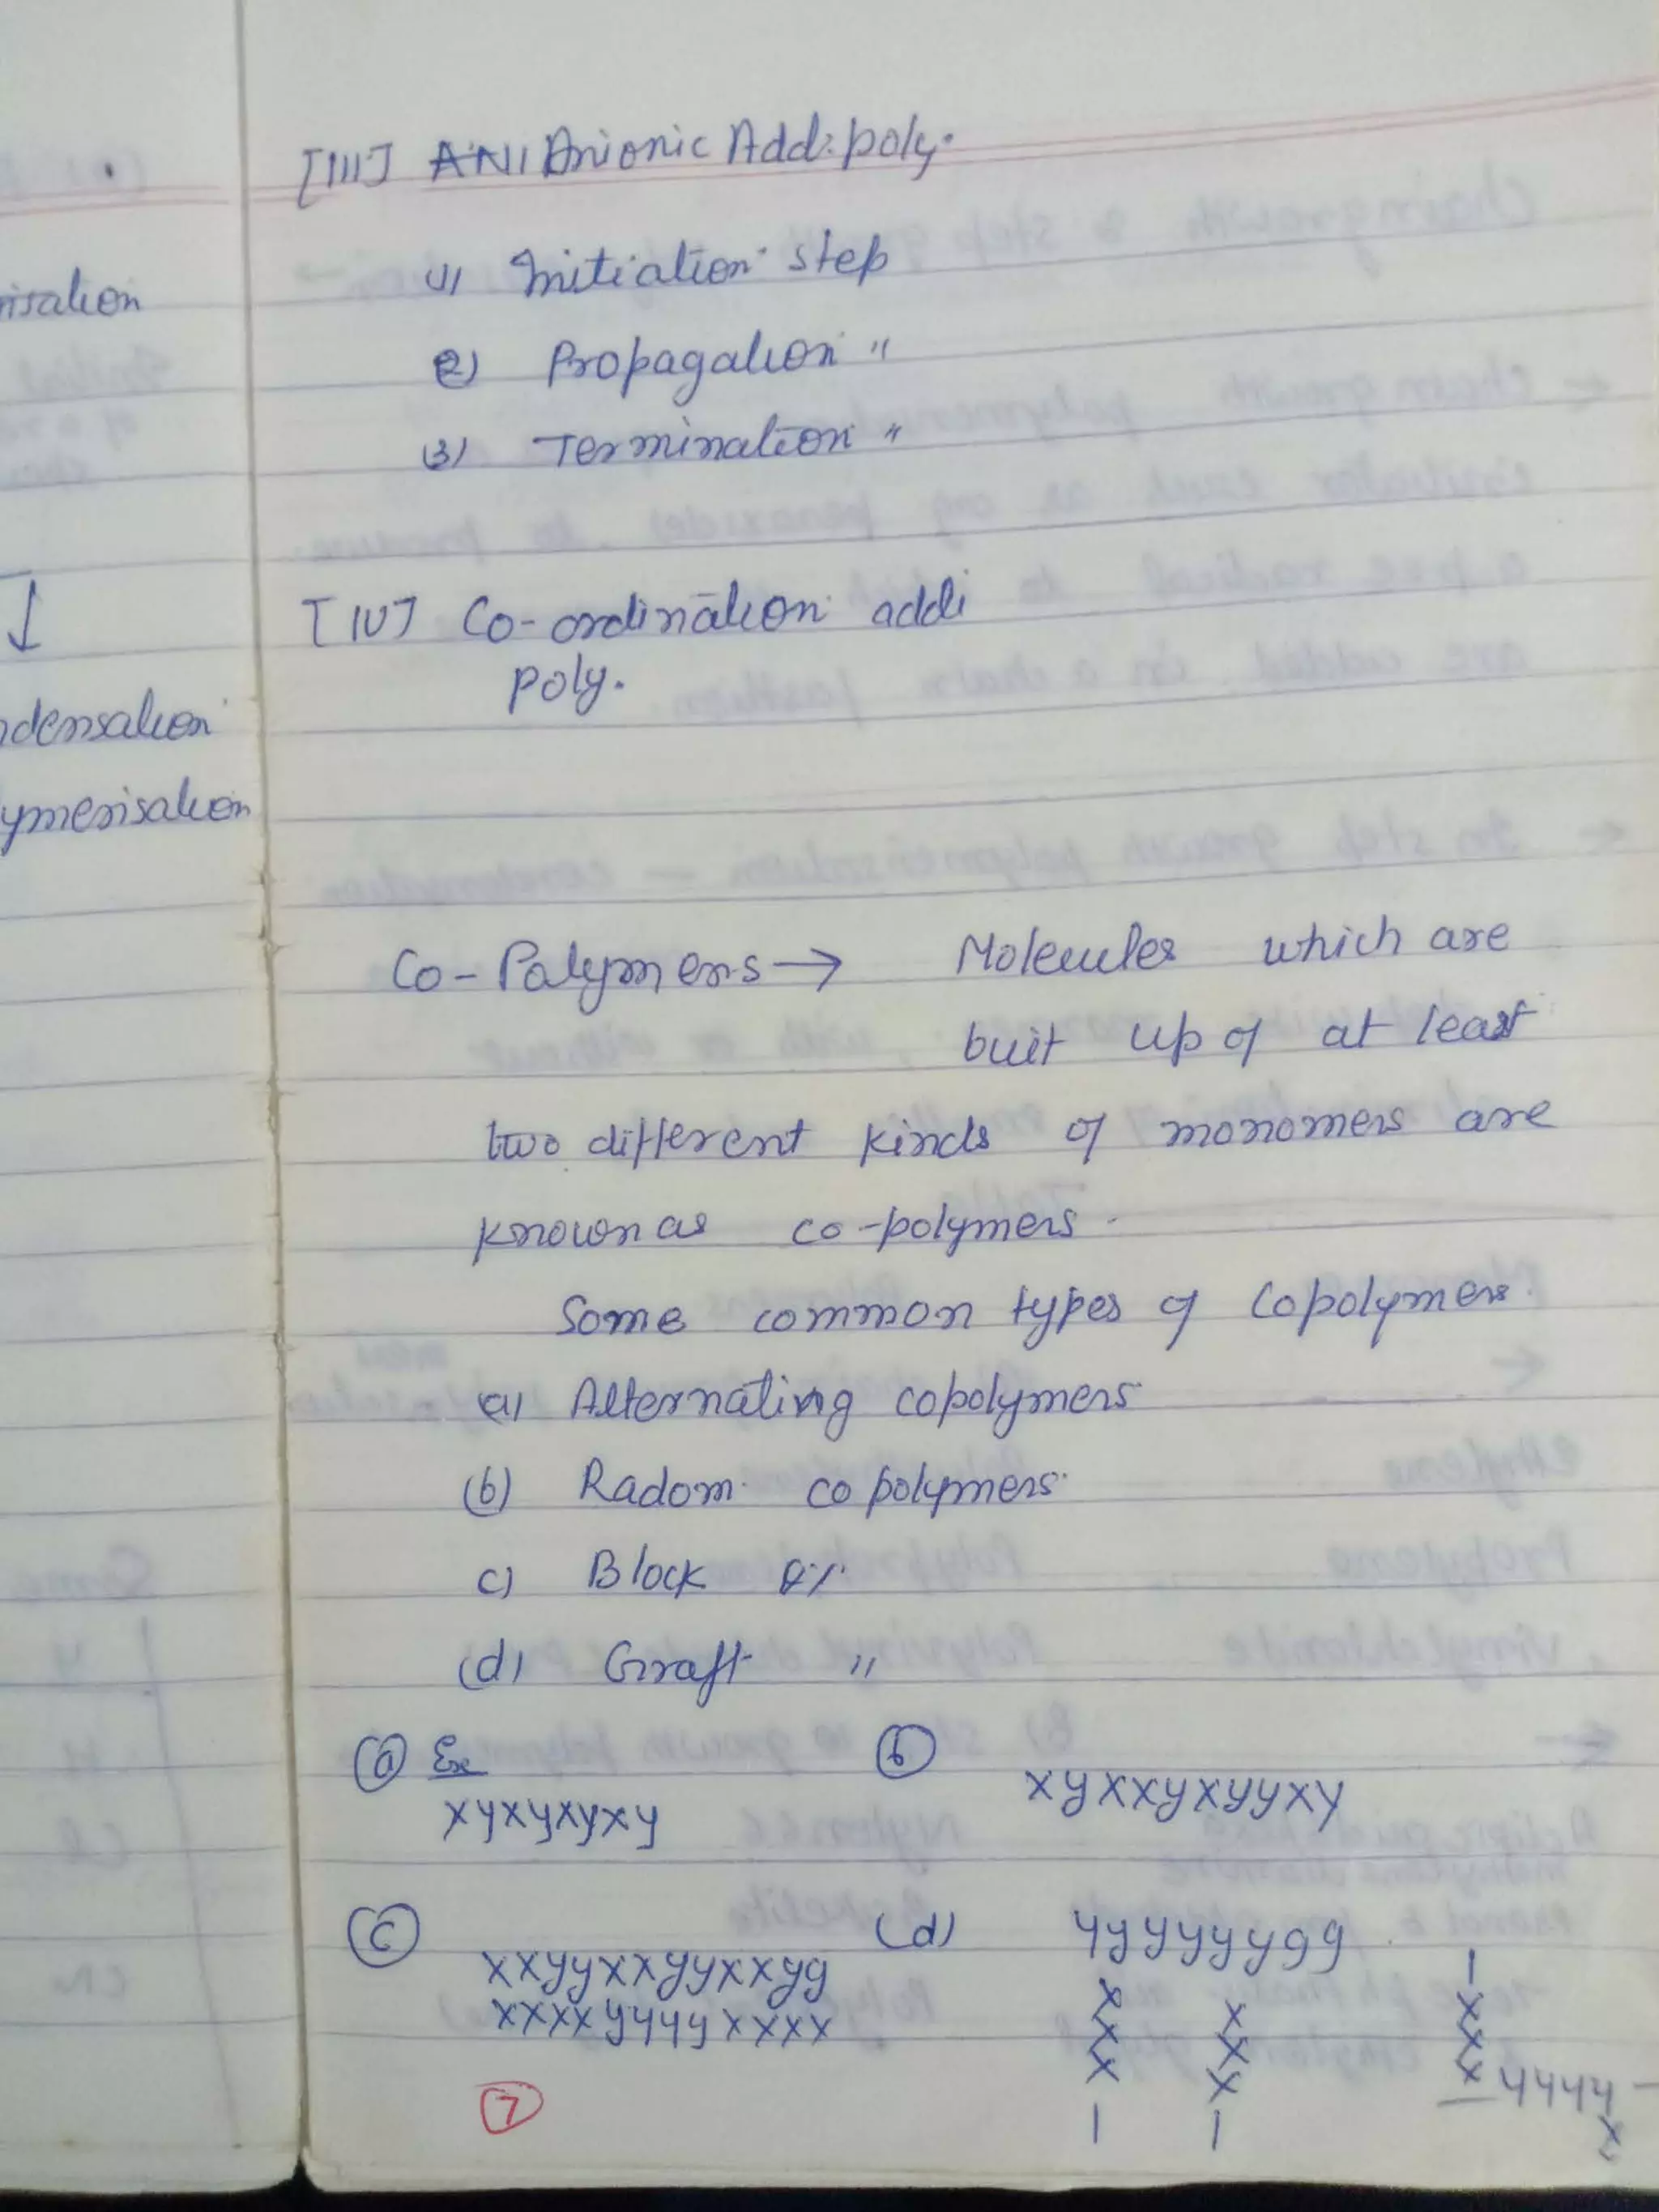 risation
↓
ndensation
ymerisation
[III] ANI Anionic Add. poly.
(1) Initiation step
(2) Propagation "
(3) Termination "
[IV] Co-ordination addi
poly.
Co-Polymers → Molecules which are
buit up of at least
two different kinds of monomers are
known as co-polymers.
Some common types of Copolymers.
(a) Alternating copolymers
(b) Radom copolymers
c) Block
(d) Graft "
(a) Ex (b)
xyxyxyxy xyxxyxyyxy
(c) (d) yyyyyyyy
xxyyxxyyxxyy
xxxxyyyyxxxx
x x x
x x x
x x x yyyy
x
7